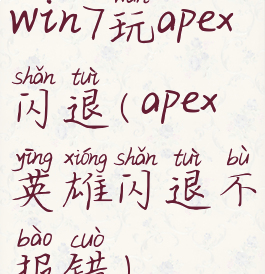 win7玩apex
shǎn tuì
闪退(apex
yīng xióng shǎn tuì bù
英雄闪退不
bào cuò
报错)